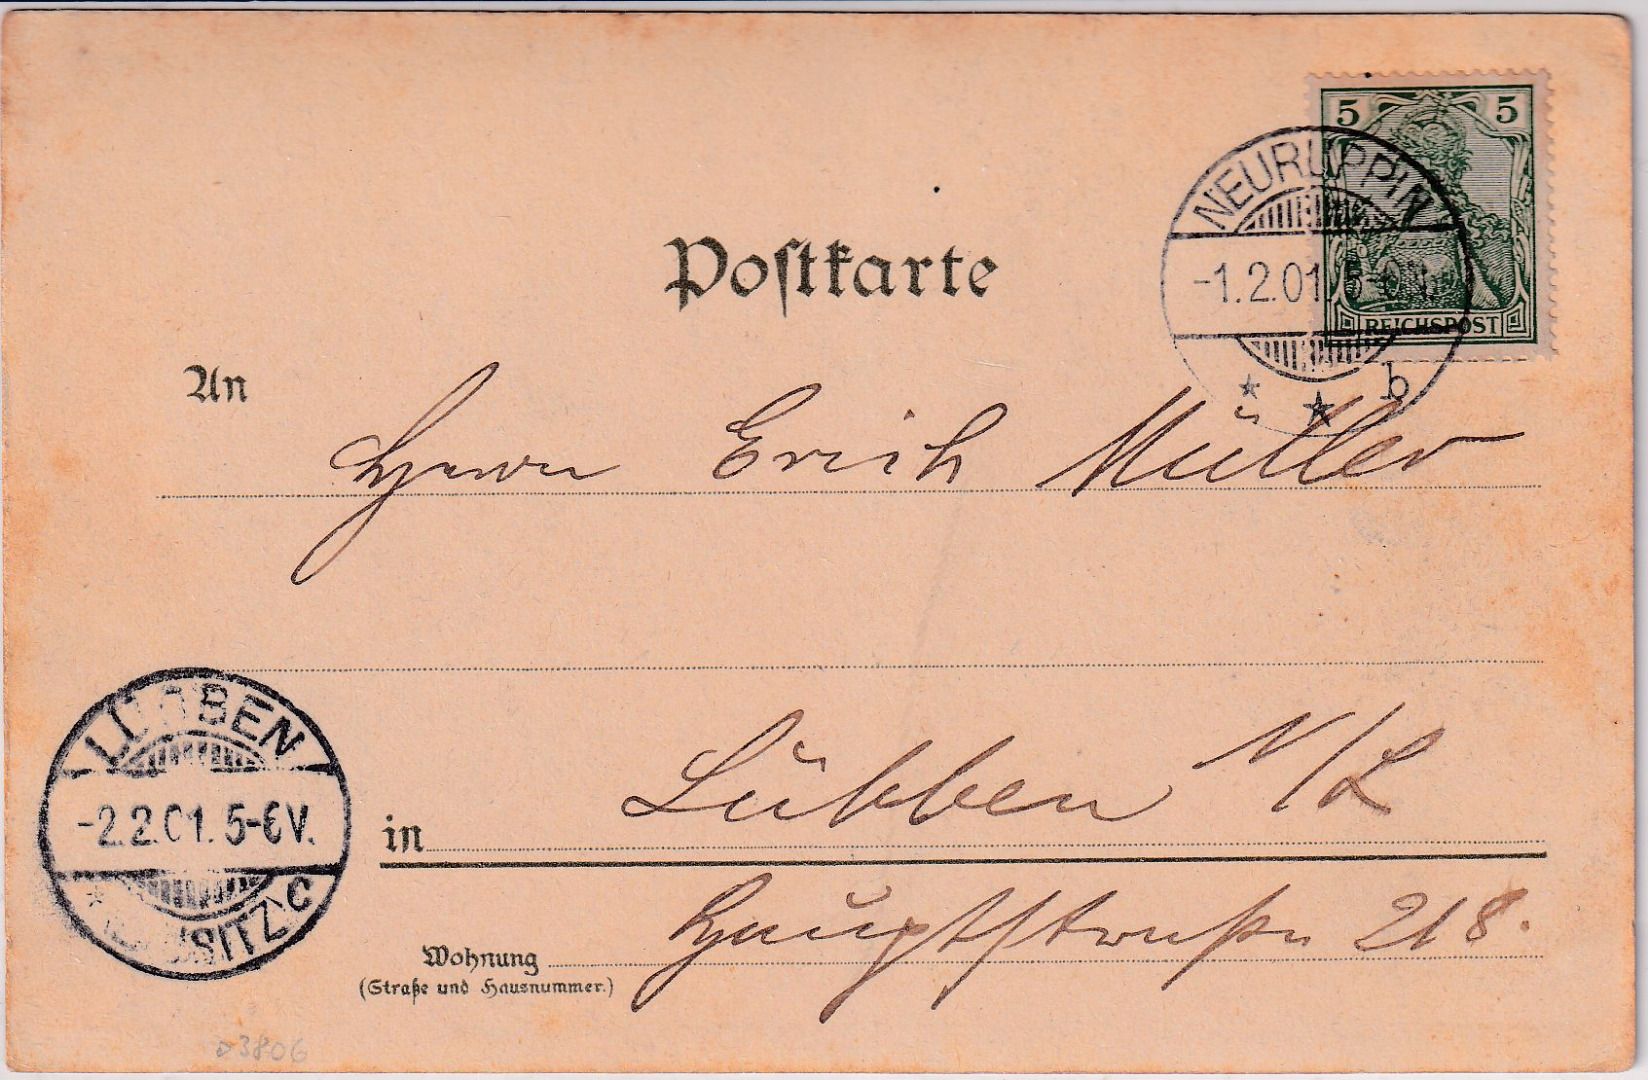 5 5
NEURUPPIN
-1.2.01. 5-6N.
b
REICHSPOST
Postkarte
An
Herrn Erich Müller
in Lübben N/L
Wohnung Hauptstraße 218.
(Straße und Hausnummer.)
LÜBBEN
-2.2.01. 5-6V.
c
D3806